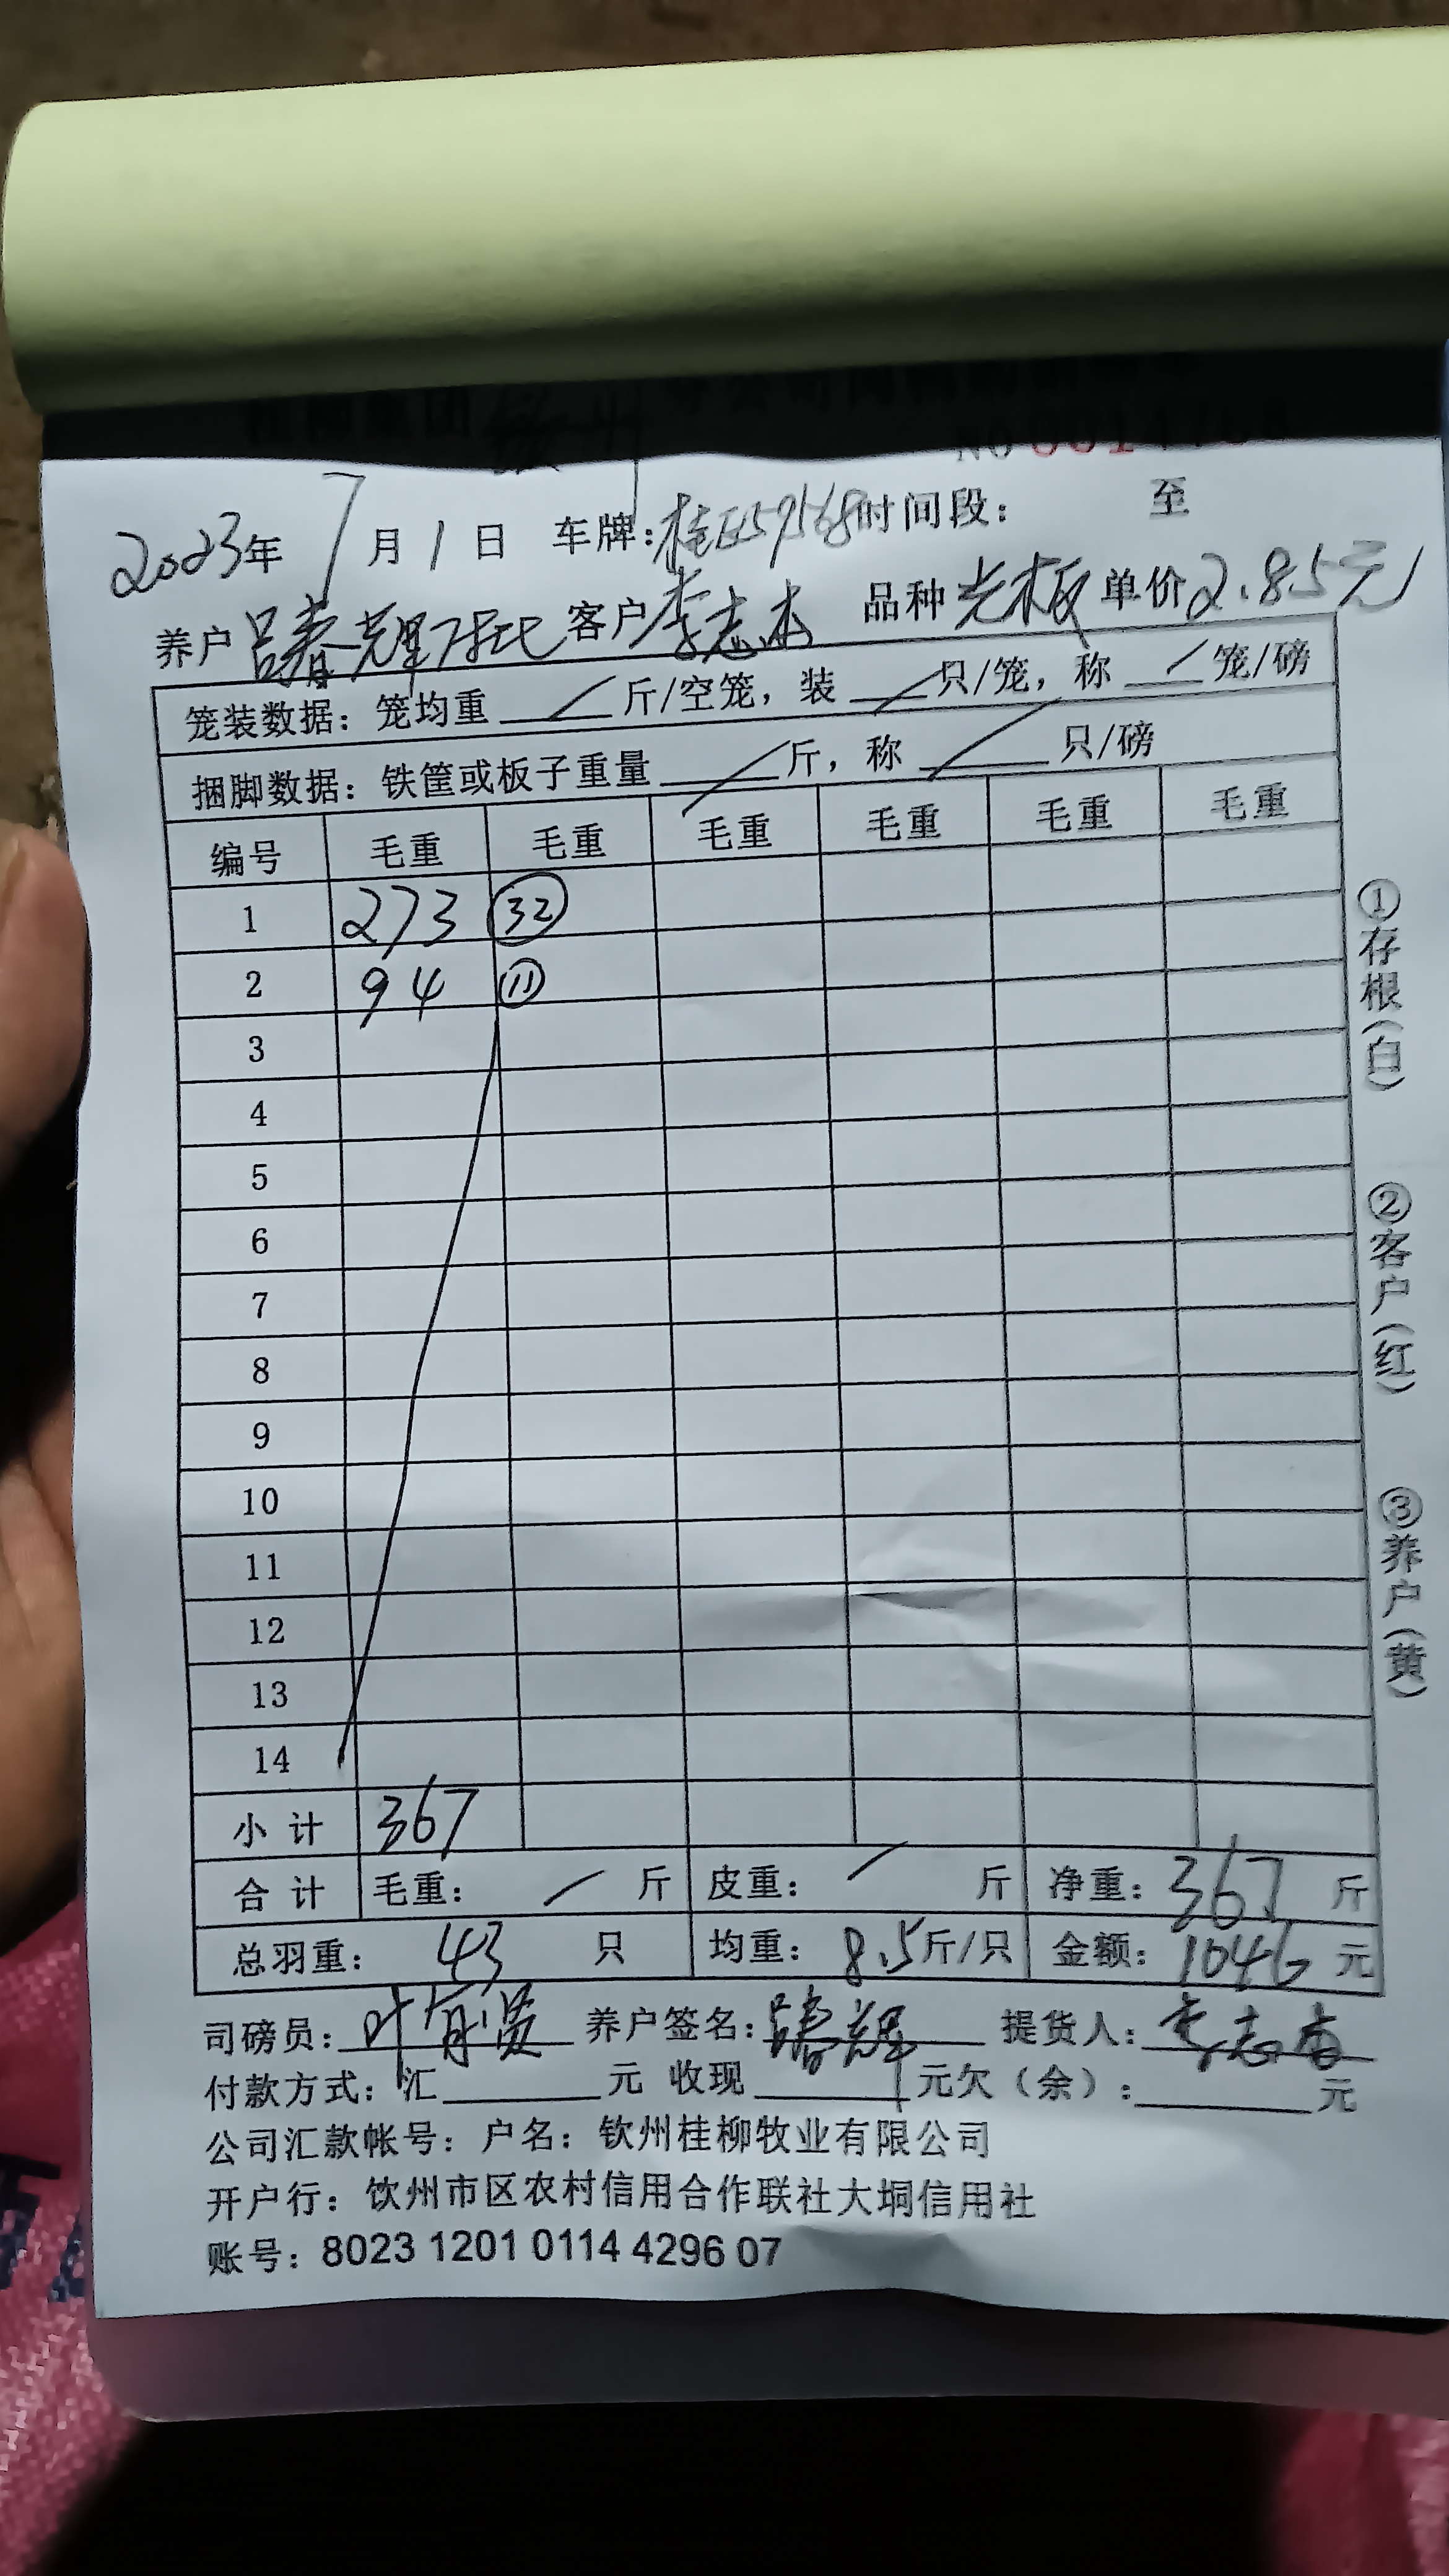 桂柳集团 分公司肉鸭销售磅单
NO 0014768
2023年 7月1日 车牌:桂E59568时间段: 至
养户 吕春辉7批 客户李志杰 品种 光板 单价2.85元
笼装数据: 笼均重 / 斤/空笼, 装 / 只/笼, 称 / 笼/磅
捆脚数据: 铁筐或板子重量 / 斤, 称 / 只/磅
编号 毛重 毛重 毛重 毛重 毛重 毛重
1 273 ㉜
2 94 ⑪
3
4
5
6
7
8
9
10
11
12
13
14
小 计 367
合 计 毛重: / 斤 皮重: / 斤 净重: 367 斤
总羽重: 43 只 均重: 8.5斤/只 金额: 1046 元
司磅员: 叶 养户签名: 吕春辉 提货人: 李志
付款方式: 汇 元 收现 元欠(余): 元
公司汇款帐号: 户名: 钦州桂柳牧业有限公司
开户行: 饮州市区农村信用合作联社大垌信用社
账号: 8023 1201 0114 4296 07
①存根(白)
②客户(红)
③养户(黄)